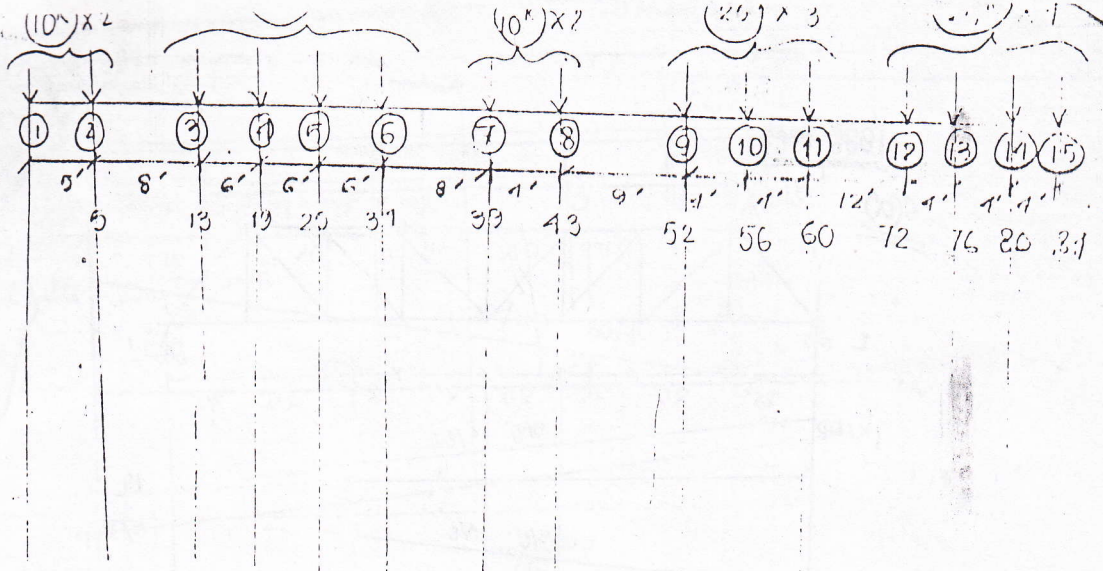 (10ᴷ) X 2 (10ᴷ) X 2 (20) X 3
1 2 3 4 5 6 7 8 9 10 11 12 13 14 15
5' 8' 6' 6' 6' 8' 4' 9' 4' 4' 12' 4' 4' 4'
5 13 19 25 31 39 43 52 56 60 72 76 80 84